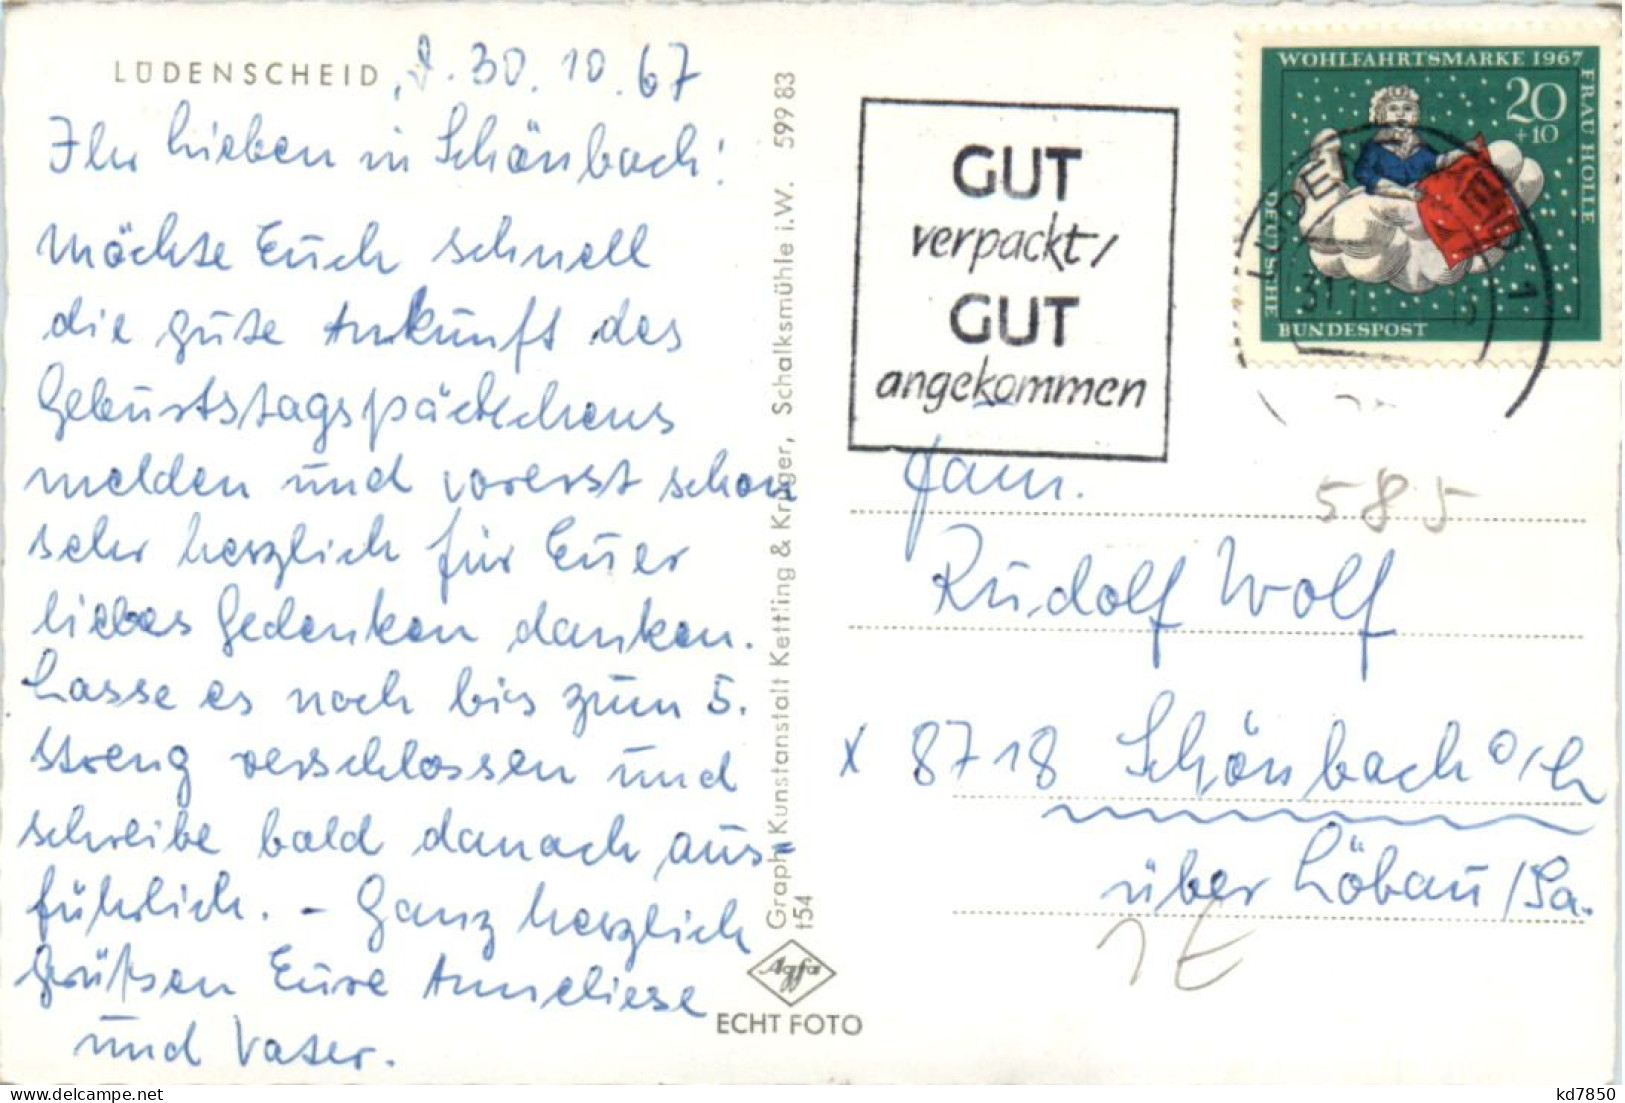 LÜDENSCHEID, d. 30.10.67
Ihr Lieben in Schönbach!
Möchte Euch schnell
die gute Ankunft des
Geburtstagspäckchens
melden und vorerst schon
sehr herzlich für Euer
liebes Gedenken danken.
Lasse es noch bis zum 5.
streng verschlossen und
schreibe bald danach aus=
führlich. - Ganz herzlich
grüßen Eure Anneliese
und Vater.
Graph. Kunstanstalt Ketting & Krüger, Schalksmühle i.W. 599 83
t54
Agfa
ECHT FOTO
GUT
verpackt/
GUT
angekommen
WOHLFAHRTSMARKE 1967
FRAU HOLLE
20
+10
DEUTSCHE
BUNDESPOST
31
1
Fam.
585
Rudolf Wolf
x 8718 Schönbach
über Löbau/Sa.
1E
kd7850